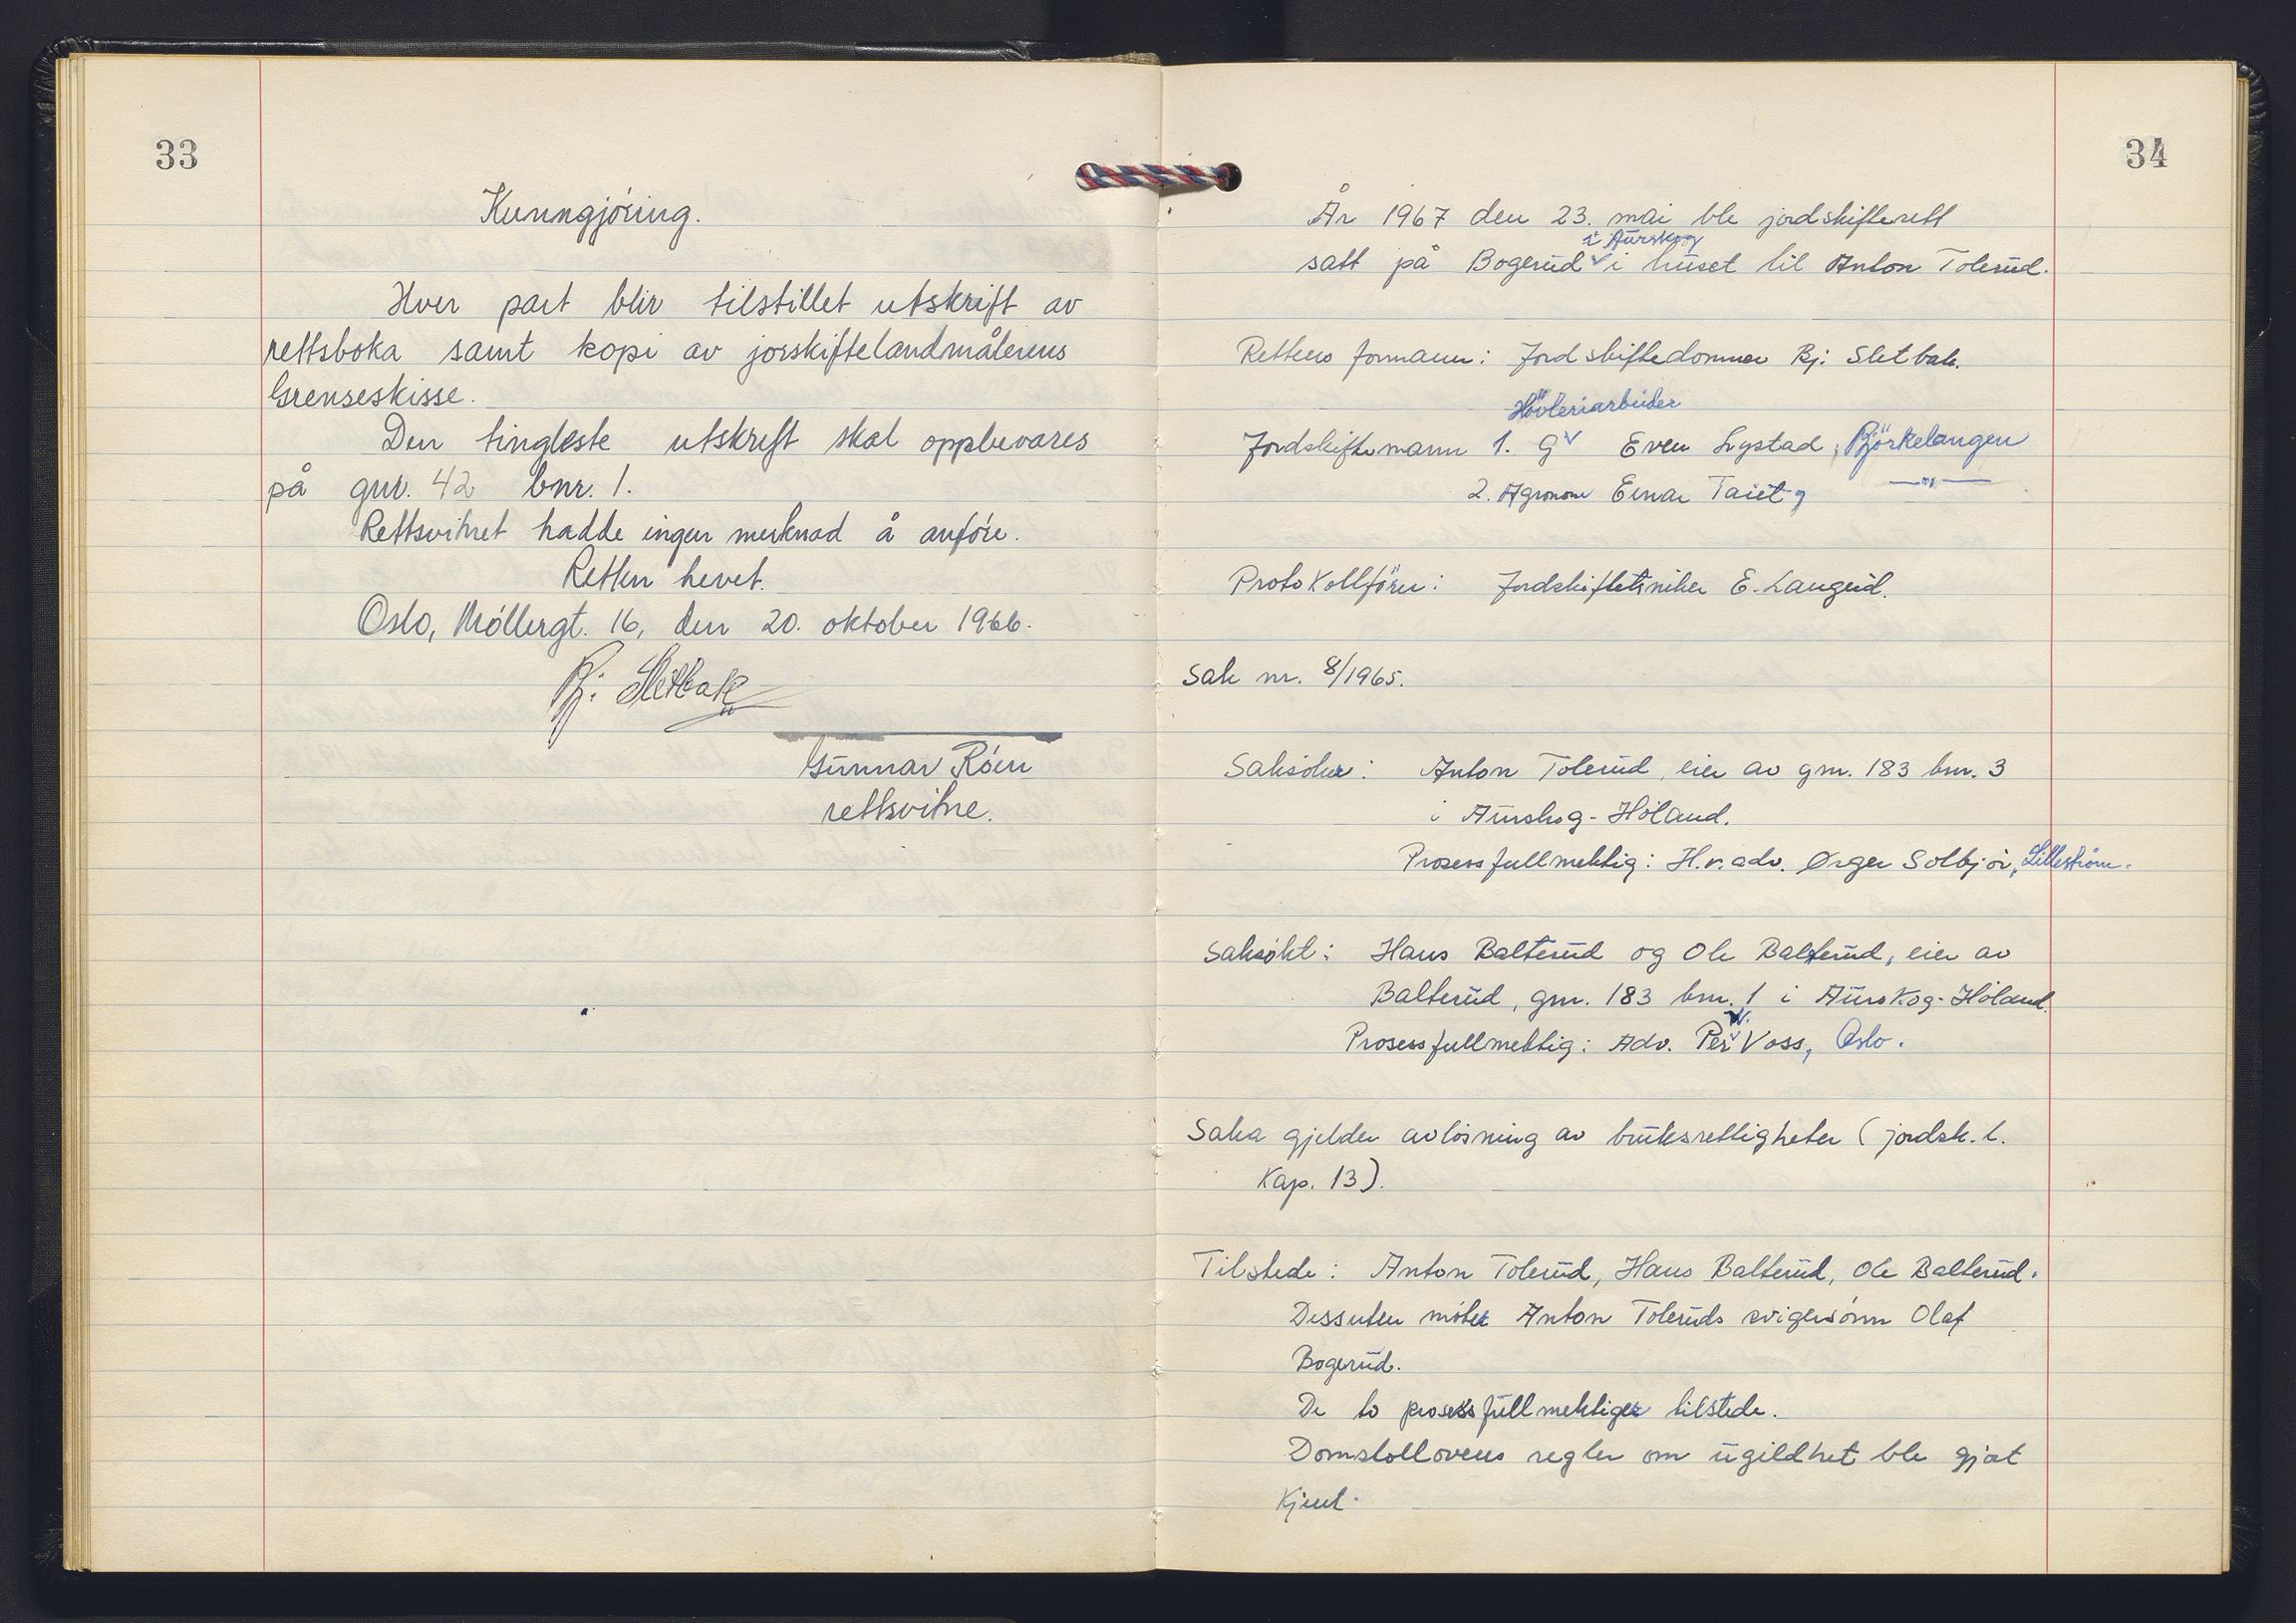 33
Kunngjöring.
Hver part blir tilstillet utskrift av
rettsboka samt kopi av jorskiftelandmålerens
Grenseskisse.
Den tingleste utskrift skal oppbevares
på gnr. 42 bnr. 1.
Rettsvitnet hadde ingen merknad å anföre.
Retten hevet.
Oslo, Möllergt. 16, den 20. oktober 1966.
Bj: Sletbak
Gunnar Röen
rettsvitne.
34
År 1967 den 23. mai ble jordskifterett
i Aurskog
satt på Bogerud i huset til Anton Tolerud.
Rettens formann: Jordskiftedommer Bj: Sletbak.
Hövleriarbeider
Jordskiftemann 1. G Even Lystad, Björkelangen
2. Agronom Einar Taiet, —"—
Protokollförer: Jordskiftetekniker E. Langerud.
Sak nr. 8/1965.
Saksöker: Anton Tolerud, eier av gnr. 183 bnr. 3
i Aurskog-Höland.
Prosessfullmektig: H.r.adv. Ørger Solbjör, Lilleström.
Saksökt: Hans Balterud og Ole Balterud, eier av
Balterud, gnr. 183 bnr. 1 i Aurskog-Höland.
Prosessfullmektig: Adv. Per Voss, Oslo.
Saka gjelder avlösning av bruksrettigheter (jordsk. l.
Kap. 13).
Tilstede: Anton Tolerud, Hans Balterud, Ole Balterud.
Dessuten möter Anton Toleruds svigersönn Olaf
Bogerud.
De to prosessfullmektiger tilstede.
Domstollovens regler om ugildhet ble gjort
Kjent.